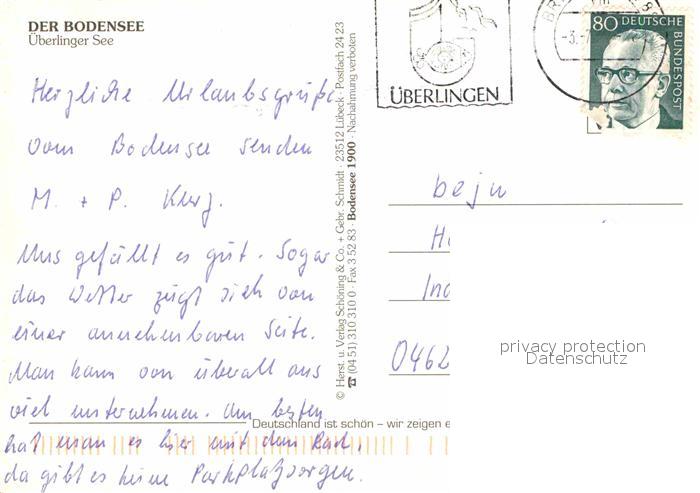 DER BODENSEE
Überlinger See
Herzliche Urlaubsgrüße
vom Bodensee senden
M. + P. Kurz.
Uns gefällt es gut. Sogar
das Wetter zeigt sich von
einer annehmbaren Seite.
Man kann von überall aus
viel unternehmen. Am besten
hat man es hier mit dem Rad,
da gibt es keine Parkplatzsorgen.
© Herst. u. Verlag Schöning & Co. + Gebr. Schmidt · 23512 Lübeck · Postfach 24 23
☎ (04 51) 310 310 0 · Fax 3 52 83 · Bodensee 1900 · Nachahmung verboten
Deutschland ist schön – wir zeigen e
ÜBERLINGEN
80 DEUTSCHE
BUNDESPOST
bejn
H
Ind
0462
privacy protection
Datenschutz